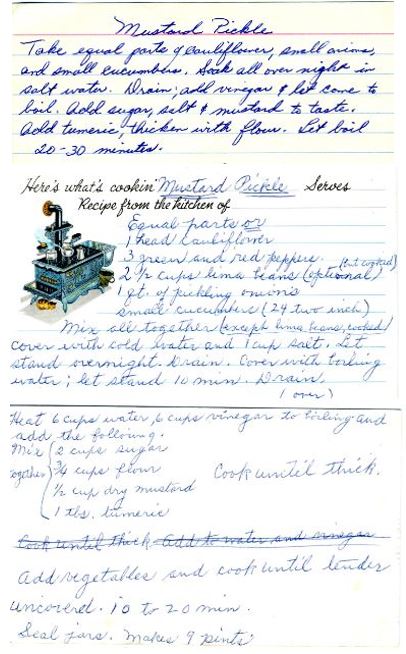 Mustard Pickle
Take equal parts of cauliflower, small onions,
and small cucumbers. Soak all over night in
salt water. Drain; add vinegar & let come to
boil. Add sugar, salt & mustard to taste.
Add tumeric, thicken with flour. Let boil
20-30 minutes.
Here's what's cookin' Mustard Pickle Serves
Recipe from the kitchen of
Equal parts or
1 head Cauliflower
3 green and red peppers.
2 ½ cups lima beans (optional) (but cooked)
1 qt. of pickling onions
small cucumbers (24 two inch)
Mix all together (except lima beans, cooked)
cover with cold water and 1 cup salt. Let
stand overnight. Drain. Cover with boiling
water; let stand 10 min. Drain.
(over)
Heat 6 cups water, 6 cups vinegar to boiling and
add the following.
Mix together
2 cups sugar
¾ cups flour
Cook until thick.
½ cup dry mustard
1 tbs. tumeric
Cook until thick. Add to water and vinegar
Add vegetables and cook until tender
uncovered. 10 to 20 min.
Seal jars. Makes 9 pints